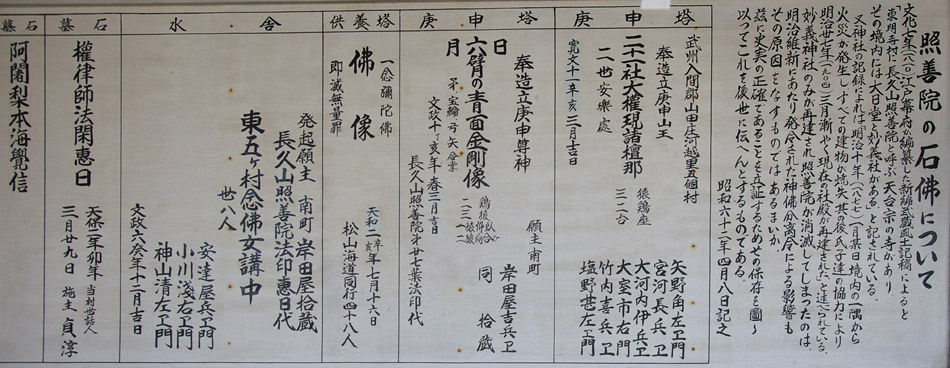 照善院の石佛について
文化七年(一八一〇)江戸幕府が編纂した新編武蔵風土記稿によると
「東明寺村に長久山照善院と呼ぶ天台宗の寺があり
その境内には大日堂と妙義社がある」と記されている。
又神社の記録によれば明治十年(一八七七)一月某日境内の一隅から
火災が発生しすべての建物が焼失其の後氏子達の協力により
明治卅七年(一九〇四)三月漸やく現在の社殿が再建された」と述べられている。
妙義神社のみが再建され照善院が消滅してしまったのは、
明治維新にあたり発令された神佛分离令による影響も
その原因をなすものではあるまいか。
茲に史実の正確であることを立証するためその保存を図り
以ってこれを後世に伝へんとするものである。
昭和六十二年四月八日記之
庚申塔
武州入間郡山田庄河越里五個村
奉造立庚申山王
二十一社大權現諸檀那
二世安樂處
寛文十一辛亥三月吉日
猿鶏座
三二合
矢野角左卫門
宮河長兵卫
大河内伊兵卫
大室市右門
竹内喜兵卫
塩野甚左卫門
庚申塔
奉造立庚申尊神
日月
六臂の青面金剛像
文政十丁亥年春三月吉日
長久山照善院第廿七葉法印代
願主南町
岸田屋吉兵卫
同 拾蔵
供養塔
一念彌陀佛
佛像
即滅無量罪
天和二年七月十六日
松山海道同行四十八人
舎水
發起願主 南町 岸田屋拾蔵
長久山照善院法印惠日代
東五ヶ村念佛女講中
世八人
文政六癸年十二月吉日
安達屋兵卫門
小川淺右卫門
神山清左卫門
墓石
權律師法閑惠日
天保二年卯年
三月廿九日
当村世話人
施主貞淳
墓石
阿闍梨本海覺信